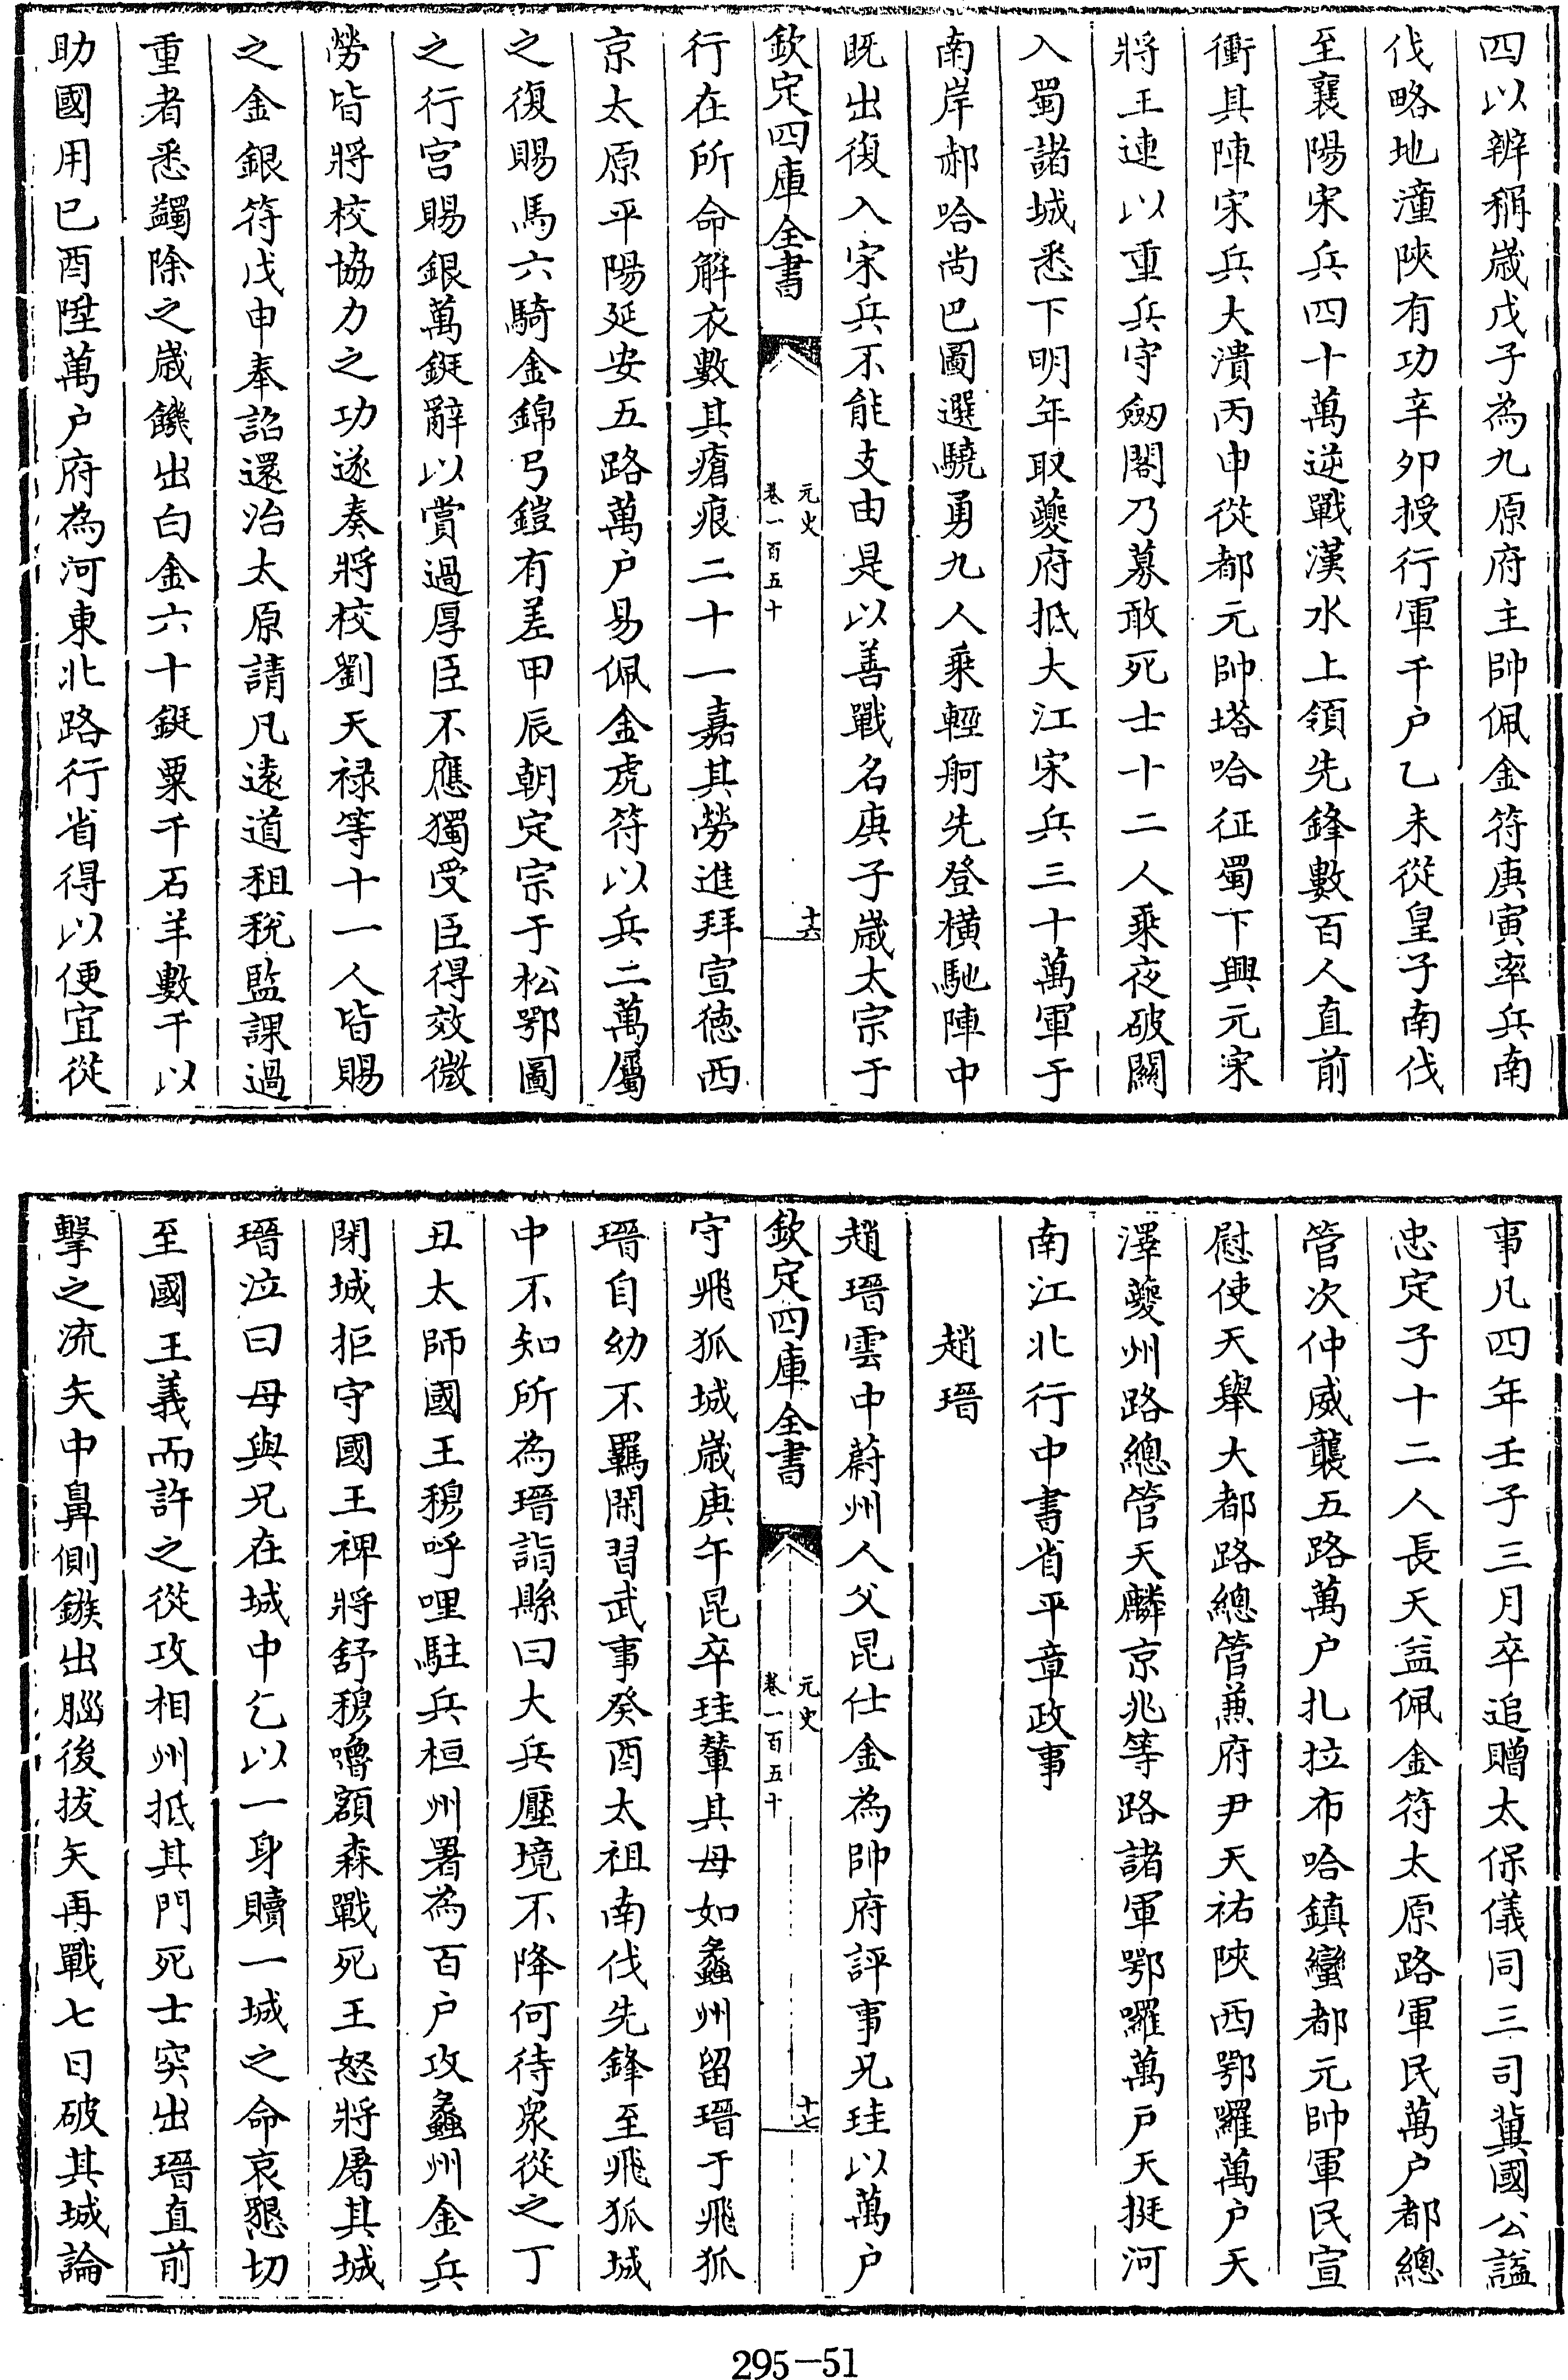 四以辨稱歳戊子為九原府主帥佩金符庚寅率兵南
伐略地潼陜有功辛卯授行軍千户乙未從皇子南伐
至襄陽宋兵四十萬逆戰漢水上領先鋒數百人直前
衝其陣宋兵大潰丙申從都元帥塔哈征蜀下興元宋
將王連以重兵守劒閣乃募敢死士十二人乘夜破關
入蜀諸城悉下明年取䕫府抵大江宋兵三十萬軍于
南岸郝哈尚巴圖選驍勇九人乘輕舸先登横馳陣中
既出復入宋兵不能支由是以善戰名庚子歳太宗于
欽定四庫全書
元史
卷一百五十
十六
行在所命解衣數其瘡痕二十一嘉其勞進拜宣徳西
京太原平陽延安五路萬户易佩金虎符以兵二萬屬
之復賜馬六騎金錦弓鎧有差甲辰朝定宗于松鄂圖
之行宫賜銀萬鋌辭以賞過厚臣不應獨受臣得效微
勞皆將校協力之功遂奏將校劉天禄等十一人皆賜
之金銀符戊申奉詔還治太原請凡逺道租税監課過
重者悉蠲除之歳饑出白金六十鋌粟千石羊數千以
助國用巳酉陞萬户府為河東北路行省得以便宜從
事凡四年壬子三月卒追贈太保儀同三司冀國公諡
忠定子十二人長天益佩金符太原路軍民萬户都總
管次仲威襲五路萬户扎拉布哈鎮蠻都元帥軍民宣
慰使天舉大都路總管兼府尹天祐陜西鄂囉萬户天
澤䕫州路總管天麟京兆等路諸軍鄂囉萬户天挺河
南江北行中書省平章政事
趙瑨
趙瑨雲中蔚州人父昆仕金為帥府評事兄珪以萬户
欽定四庫全書
元史
卷一百五十
十七
守飛狐城歳庚午昆卒珪輦其母如蠡州留瑨于飛狐
瑨自幼不羈閑習武事癸酉太祖南伐先鋒至飛狐城
中不知所為瑨詣縣曰大兵壓境不降何待衆從之丁
丑太師國王穆呼哩駐兵桓州署為百户攻蠡州金兵
閉城拒守國王裨將舒穆嚕額森戰死王怒將屠其城
瑨泣曰母與兄在城中乞以一身贖一城之命哀懇切
至國王義而許之從攻相州抵其門死士突出瑨直前
擊之流矢中鼻側鏃出腦後拔矢再戰七日破其城論
295-51